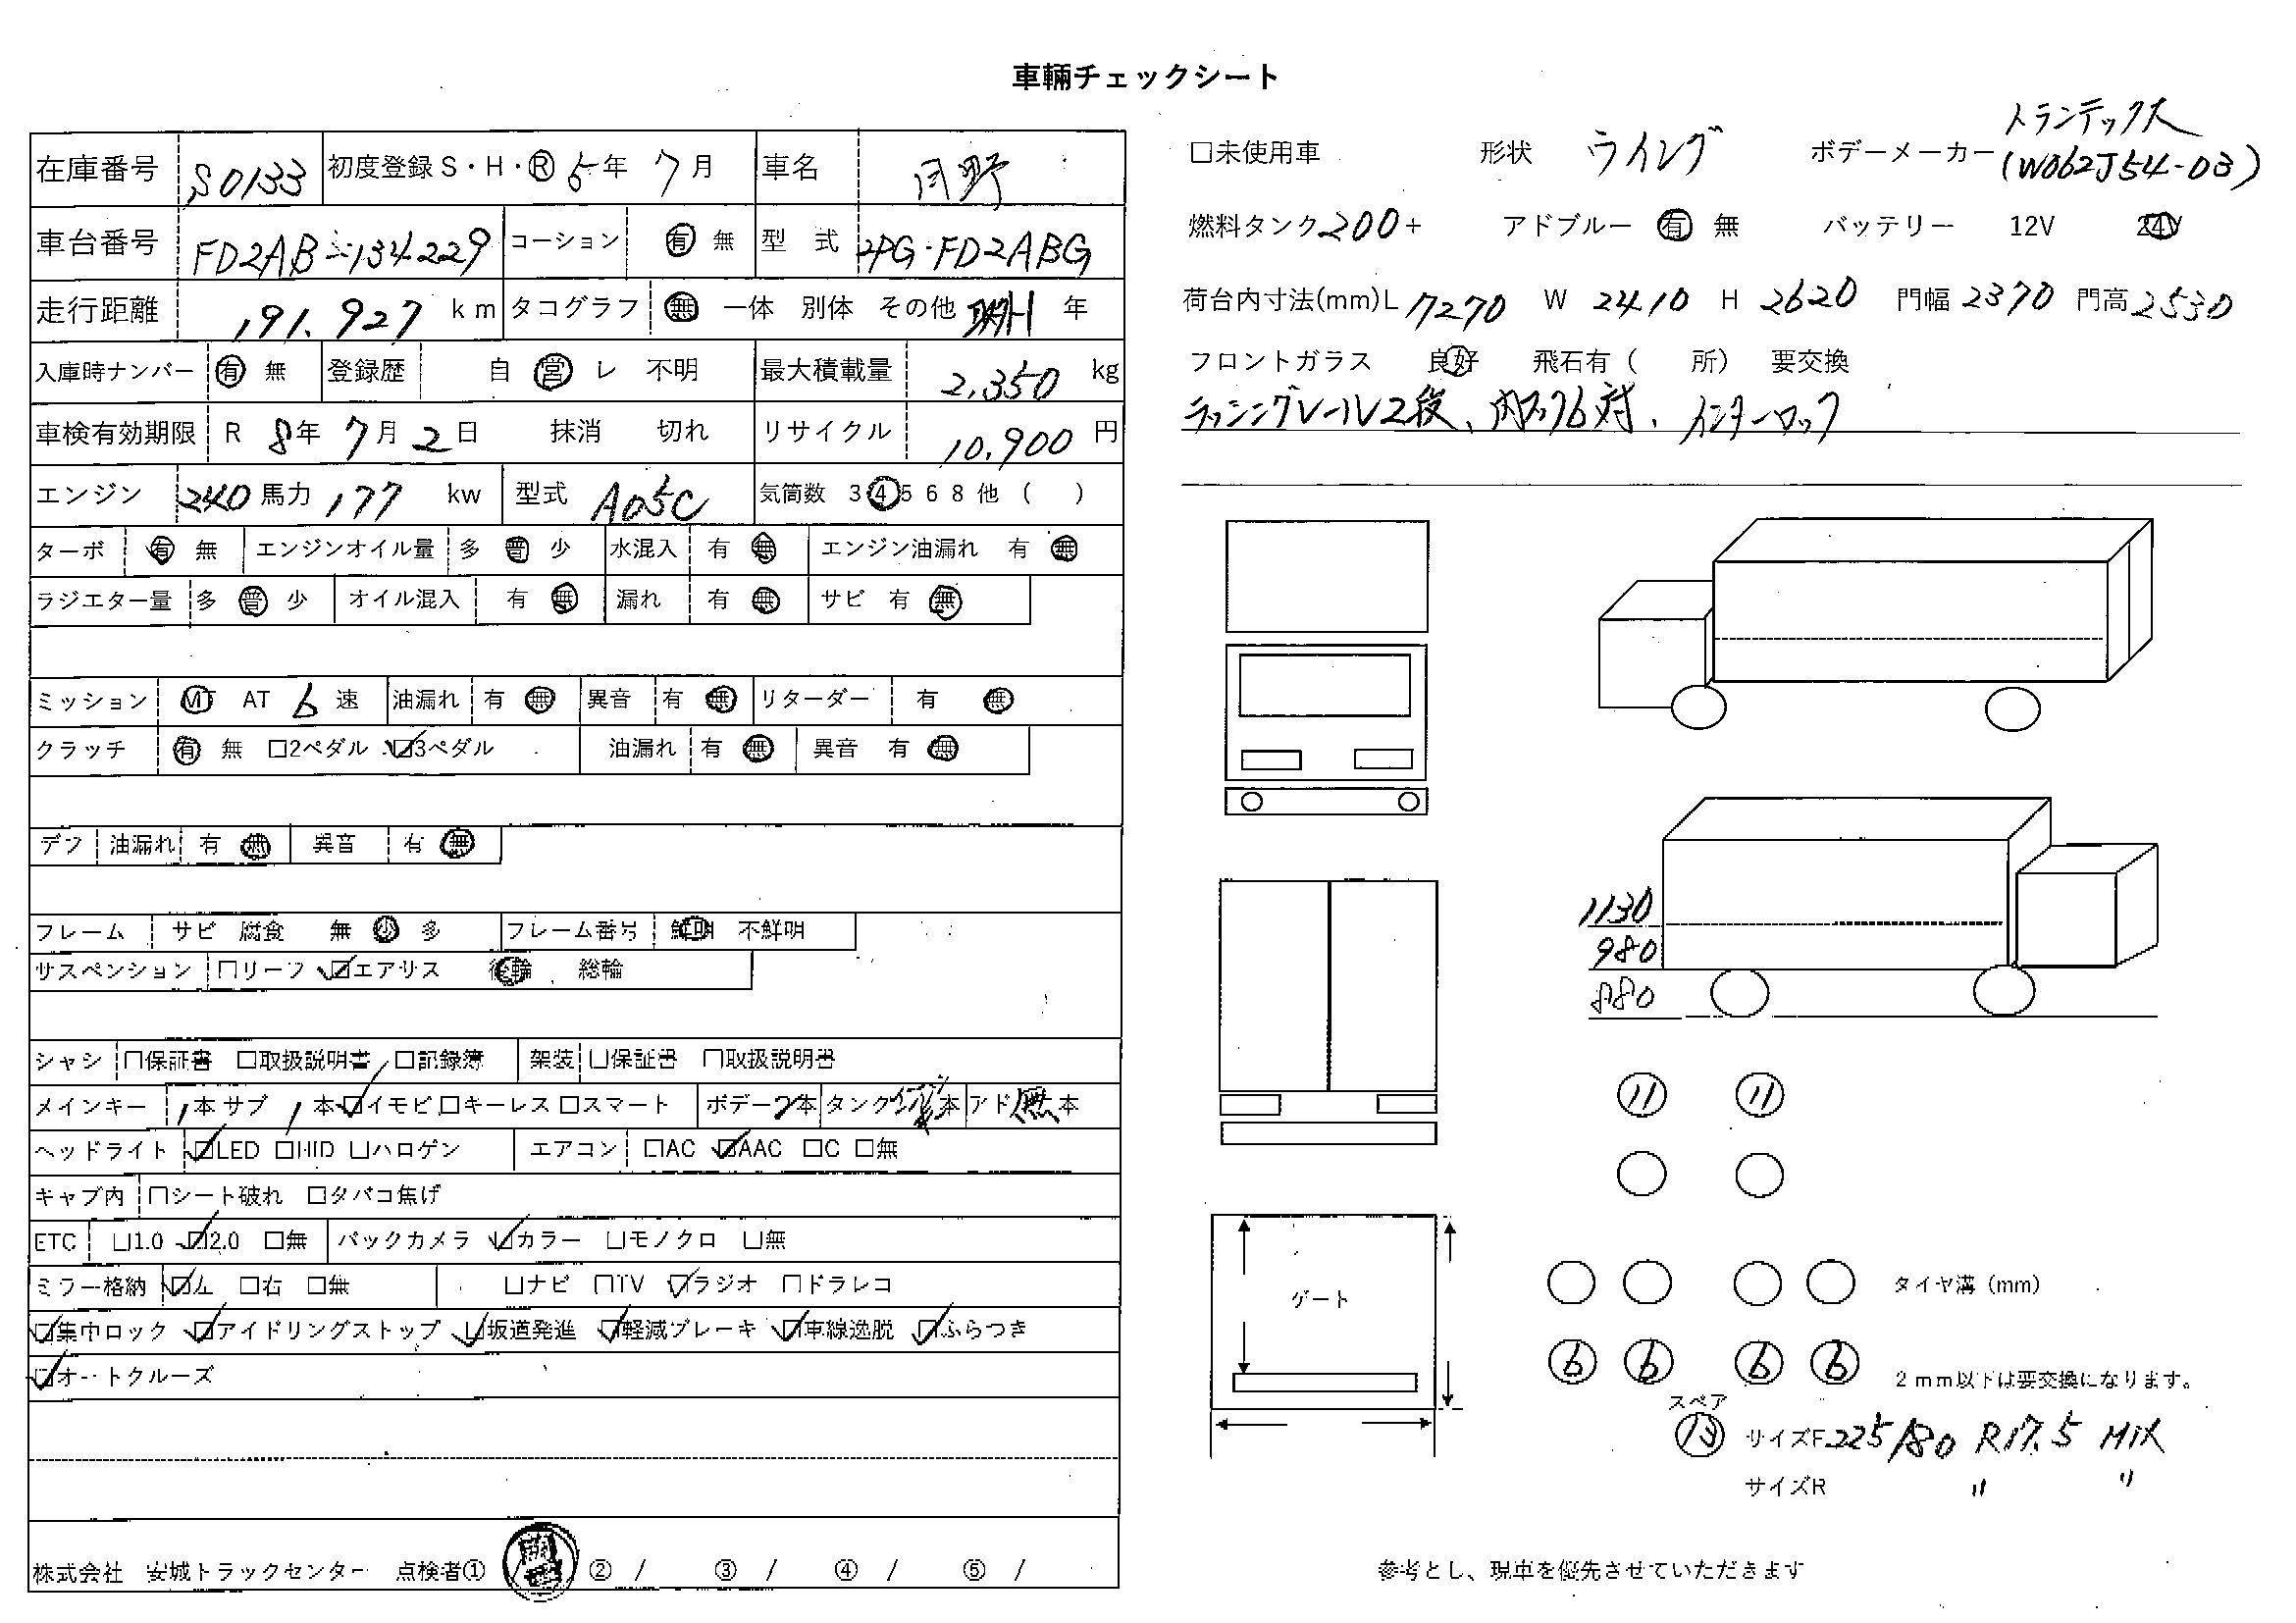 車輛チェックシート
在庫番号 S0133 初度登録 S・H・R 5年 7月 車名 日野
車台番号 FD2AB-134229 コーション 有 無 型 式 2PG-FD2ABG
走行距離 191,927 km タコグラフ 無 一体 別体 その他 年
入庫時ナンバー 有 無 登録歴 自 営 レ 不明 最大積載量 2,350 kg
車検有効期限 R 8年 7月 2日 抹消 切れ リサイクル 10,900 円
エンジン 240馬力 177 kw 型式 A05C 気筒数 3 4 5 6 8 他 ( )
ターボ 有 無 エンジンオイル量 多 普 少 水混入 有 無 エンジン油漏れ 有 無
ラジエター量 多 普 少 オイル混入 有 無 漏れ 有 無 サビ 有 無
ミッション MT AT 6速 油漏れ 有 無 異音 有 無 リターダー 有 無
クラッチ 有 無 □2ペダル ☑3ペダル 油漏れ 有 無 異音 有 無
デフ 油漏れ 有 無 異音 有 無
フレーム サビ 腐食 無 少 多 フレーム番号 鮮明 不鮮明
サスペンション □リーフ ☑エアサス 後輪 総輪
シャシ □保証書 □取扱説明書 □記録簿 架装 □保証書 □取扱説明書
メインキー 1本 サブ 1本 ☑イモビ □キーレス □スマート ボデー2本 タンク 本 アド無本
ヘッドライト ☑LED □HID □ハロゲン エアコン □AC ☑AAC □C □無
キャブ内 □シート破れ □タバコ焦げ
ETC □1.0 ☑2.0 □無 バックカメラ ☑カラー □モノクロ □無
ミラー格納 ☑左 □右 □無 □ナビ □TV ☑ラジオ □ドラレコ
☑集中ロック ☑アイドリングストップ ☑坂道発進 ☑軽減ブレーキ ☑車線逸脱 ☑ふらつき
☑オートクルーズ
株式会社 安城トラックセンター 点検者① ② / ③ / ④ / ⑤ /
□未使用車 形状 ウイング ボデーメーカー トランテックス
(W062J54-03)
燃料タンク 200+ アドブルー 有 無 バッテリー 12V 24V
荷台内寸法(mm)L 7270 W 2410 H 2620 門幅 2370 門高 2530
フロントガラス 良好 飛石有 ( 所) 要交換
ラッシングレール2段、内フック6対、インターロック
1130
980
880
11 11
ゲート
タイヤ溝 (mm)
6 6 6 6
2mm以下は要交換になります。
スペア
13 サイズF 225/80 R17.5 MIX
サイズR 〃 〃
参考とし、現車を優先させていただきます